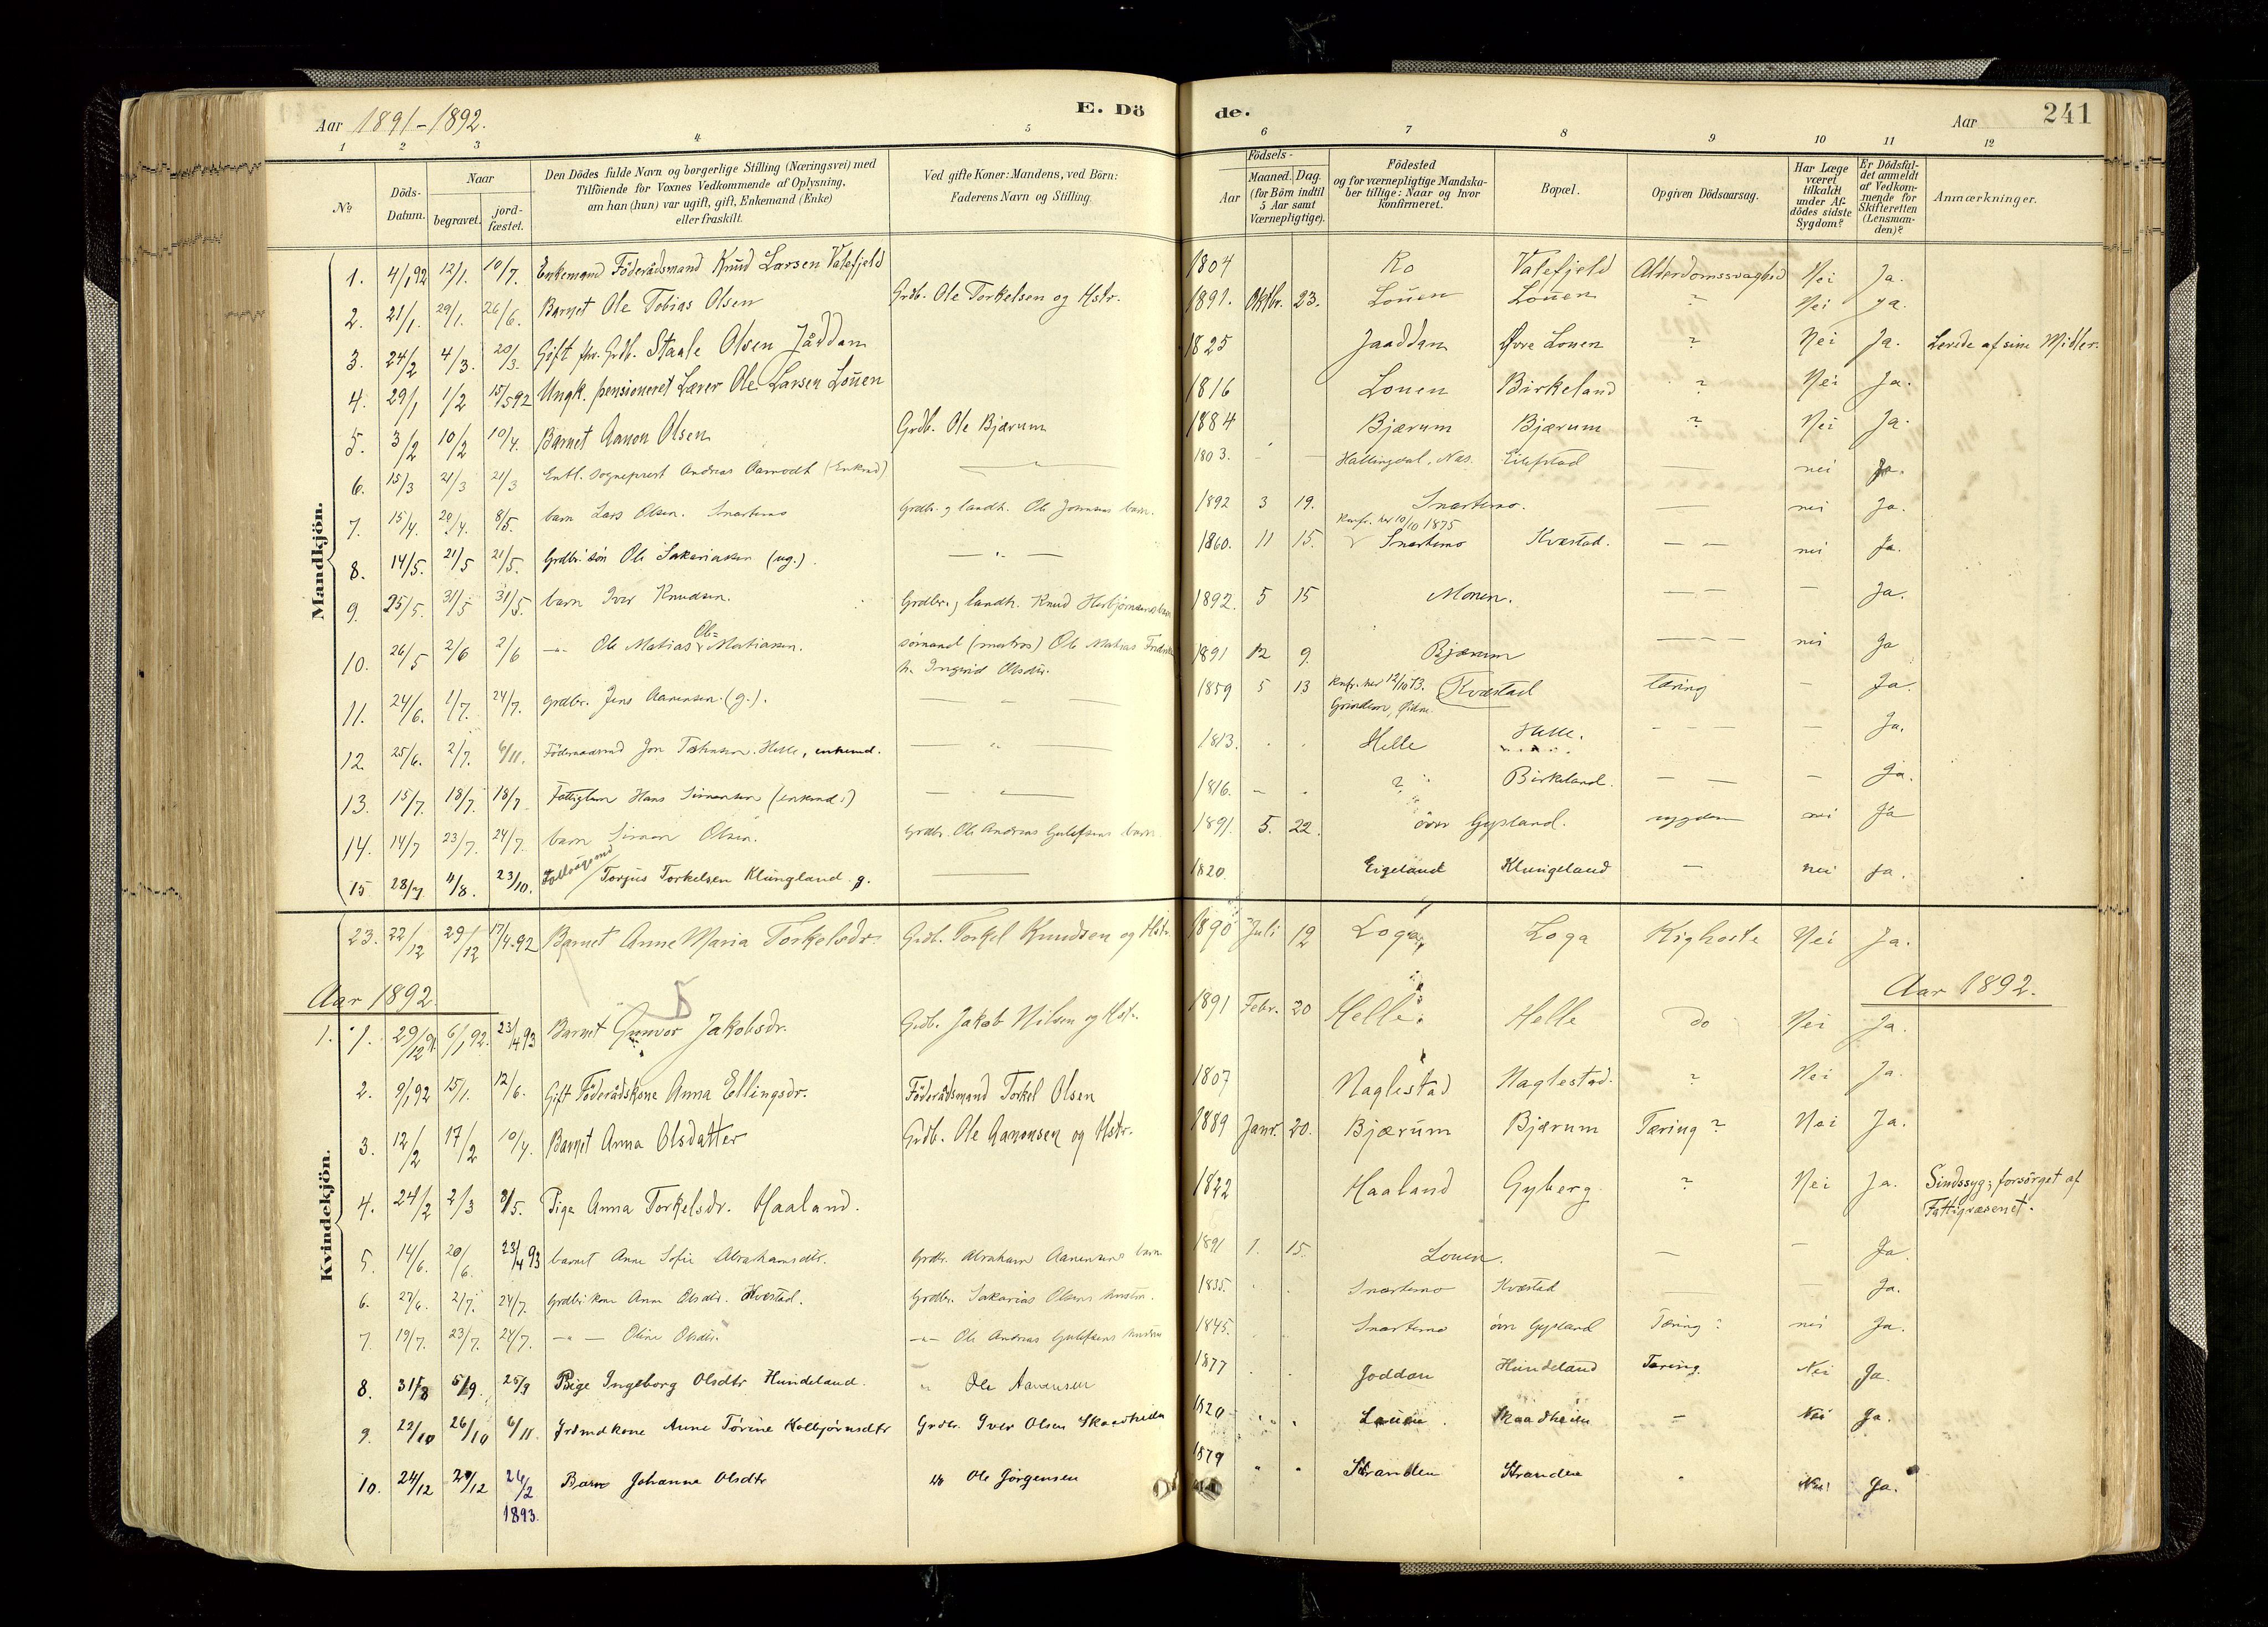 Aar 1891-1892.
E. Dö
de.
Aar
241
1 2 3 4 5 6 7 8 9 10 11 12
No
Döds-Datum.
Naar
begravet.
jord-fæstet.
Den Dödes fulde Navn og borgerlige Stilling (Næringsvei) med
Tilföiende for Voxnes Vedkommende af Oplysning,
om han (hun) var ugift, gift, Enkemand (Enke)
eller fraskilt.
Ved gifte Koner: Mandens, ved Börn:
Faderens Navn og Stilling.
Födsels-
Aar
Maaned. Dag.
(for Börn indtil
5 Aar samt
Værnepligtige).
Födested
og for værnepligtige Mandska-
ber tillige: Naar og hvor
konfirmeret.
Bopæl.
Opgiven Dödsaarsag.
Har Læge
været
tilkaldt
under Af-
dödes sidste
Sygdom?
Er Dödsfal-
det anmeldt
af Vedkom-
mende for
Skifteretten
(Lensman-
den)?
Anmærkninger.
Mandkjön.
1. 4/1 92 12/1. 10/7. Enkemand Föderådsmand Knud Larsen Vatefjeld 1804 Ro Vatefjeld Alderdomssvaghed Nei Ja.
2. 21/1. 29/1. 26/6. Barnet Ole Tobias Olsen Grdb. Ole Torkelsen og Hstr. 1891. Oktbr. 23. Louen Louen ? Nei Ja.
3. 24/2 4/3. 20/3. Gift fhv. Grdb. Staale Olsen Jåddan 1825 Jaaddan Øvre Louen ? Nei Ja. Levede af sine Midler.
4. 29/1 1/2 15/5 92 Ungk. pensioneret Lærer Ole Larsen Louen 1816 Louen Birkeland ? Nei Ja.
5. 3/2 10/2 10/4. Barnet Aanon Olsen Grdb. Ole Bjærum 1884 Bjærum Bjærum ? Nei Ja.
6. 15/3 21/3 21/3 Entl. Sogneprest Andreas Aamodt (Enkmd) — " — 1803. - — Hallingdal, Næs. Eilefstad — nei Ja.
7. 15/4. 20/4. 8/5. barn Lars Olsen. Snartemo Grdbr. g landh. Ole Johnsens barn. 1892 3 19. Snartemo. — nei Ja.
8. 14/5. 21/5 21/5. Grdbr. sön Ole Sakariasen (ug.). — " — 1860. 11 15. Knfr. her 10/10 1875 Snartemo Kvæstad. — — nei Ja.
9. 25/5. 31/5 31/5. barn Iver Knudsen. Grdbr. g landh. Knud Herbjørnsens barn 1892. 5 15 Monen. — — — Ja.
10. 26/5 2/6 2/6 —"— Ole Matias Ole= Matiassen. sømand (matros) Ole Matias
h. Ingrid Olsdtr. 1891 12 9. Bjærum — — — nei Ja
11. 24/6. 1/7. 24/7. Grdbr. Jens Aanensen (g.). — " — 1859 5 13 Knfr. her 12/10 73. Grindem, Ødne. Kvæstad tæring — Ja.
12. 25/6. 2/7. 6/11. Föderaadsmd Jon Helle, enkemd. — " — 1813. . . Helle Helle. — — — — Ja.
13. 15/7. 18/7. 18/7. Fattiglem Hans Simonsen (enkmd?) — " — 1816. - . ? Birkeland. — — — Ja.
14. 14/7 23/7. 24/7. barn Simon Olsen. Grdbr. Ole Andreas Gulefsens barn. 1891. 5. 22. övre Gysland. sygdom nei Ja
15 28/7. 4/8. 23/10. Torjus Torkelsen Klungland g. — 1820. Eigeland Klungeland — nei Ja.
Kvindekjön.
23. 22/12 29/12 17/4.92 Barnet Anne Maria Torkelsdr. Grdb. Torkel Knudsen og Hstr. 1890 Juli 12 Loga Loga Kighoste Nei Ja.
Aar 1892.
Aar 1892.
1. 1. 29/12 91. 6/1 92. 23/4 93 Barnet Gunvor Jakobsdr. Grdb. Jakob Nilsen og Hstr. 1891 Febr. 20 Helle. Helle do Nei Ja.
2. 9/1 92 15/1. 12/6. Gift Föderådskone Anna Ellingsdr. Föderådsmand Torkel Olsen 1807 Naglestad Naglestad. ? Nei Ja.
3. 12/2 17/2 10/4. Barnet Anna Olsdatter Grdb. Ole Aanonsen og Hstr. 1889 Janr. 20. Bjærum Bjærum Tæring? Nei Ja.
4. 24/2 2/3 8/5. Pige Anna Torkelsdr. Haaland. 1822 Haaland Gyberg ? Nei Ja. Sindssyg; forsørget af
Fattigvæsenet.
5. 14/6. 20/6. 23/4 93 barnet Anne Sofie Abrahamsdtr. Grdbr. Abraham Aanensens barn 1891 1. 15. Louen. — — Ja.
6. 27/6. 2/7. 24/7. Grdbr. kone Anne Olsdtr. Kvæstad. Grdbr. Sakarias Olsens hustru. 1835. . Snartemo Kvæstad — — Ja.
7. 19/7. 23/7. 24/7. —"— Oline Olsdtr. —"— Ole Andreas Gulefsens hustru 1845. . Snartemo övre Gysland Tæring? nei Ja.
8. 31/8 5/9. 25/9 Pige Ingeborg Olsdtr Hundeland. " Ole Aanensen 1877 . . Joddan Hundeland Tæring. Nei Ja.
9. 22/10 26/10 6/11. Anne Tørine Kolbjørnsdtr Grdbr. Iver Olsen Skaadheia 1820 . . Louen Skaadheia — Nei Ja.
10. 24/12 29/12 24/2 1893. Barn Johanne Olsdtr do Ole Jörgensen 1879 " " Stranden Stranden " Nei Ja.